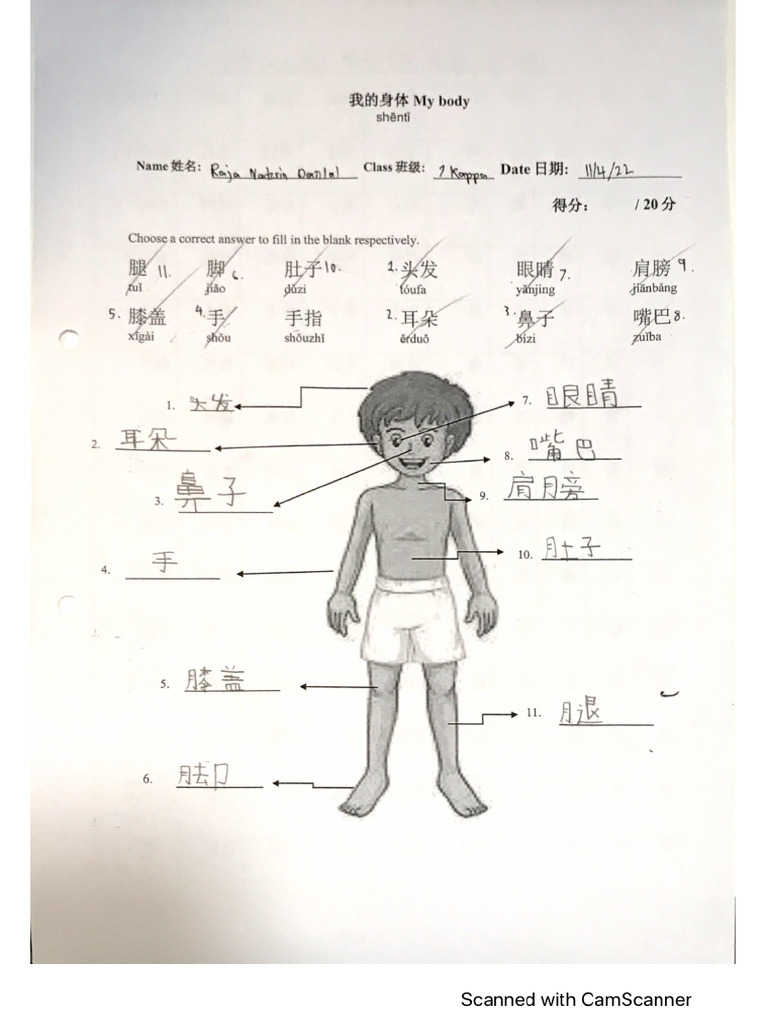 我的身体 My body
shēntǐ
Name 姓名: Raja Nadzrin Danial Class 班级: 7 Kappa Date 日期: 11/4/22
得分: / 20 分
Choose a correct answer to fill in the blank respectively.
腿 11. 脚 6. 肚子 10. 1. 头发 眼睛 7. 肩膀 9.
tuǐ jiǎo dǔzi tóufa yǎnjing jiānbǎng
5. 膝盖 4. 手 手指 2. 耳朵 3. 鼻子 嘴巴 8.
xīgài shǒu shǒuzhǐ ěrduǒ bízi zuǐba
1. 头发
7. 眼睛
2. 耳朵
8. 嘴巴
3. 鼻子
9. 肩膀
4. 手
10. 肚子
5. 膝盖
11. 腿
6. 脚
Scanned with CamScanner